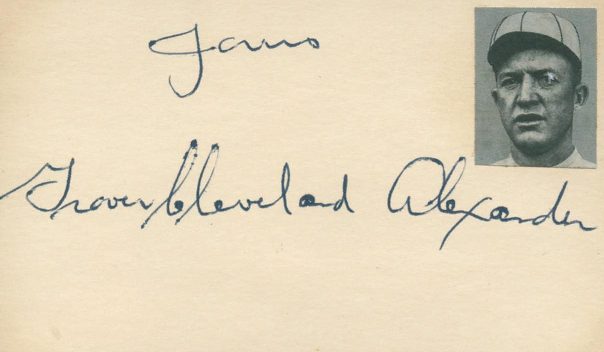 Grover Cleveland Alexander